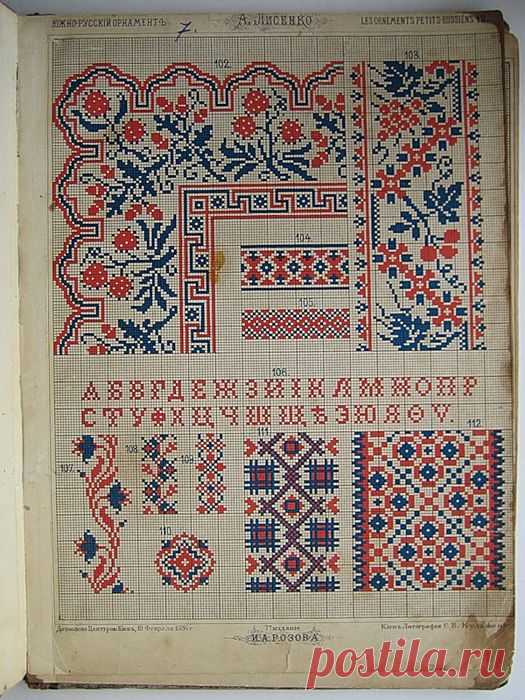 ЮЖНО-РУССКІЙ ОРНАМЕНТЪ
7.
А. ЛИСЕНКО
LES ORNEMENTS PETITS-RUSSIENS
102.
103.
104.
105.
106.
АБВГДЕЖЗИІКЛМНОПР
СТУФХЦЧШЩѢЭЮЯѲѴ.
107.
108.
109.
110.
111.
112
Дозволено Цензурою. Кіевъ,
изданіе
И.А.РОЗОВА
Кіевъ, Литографія С. В.
postila.ru